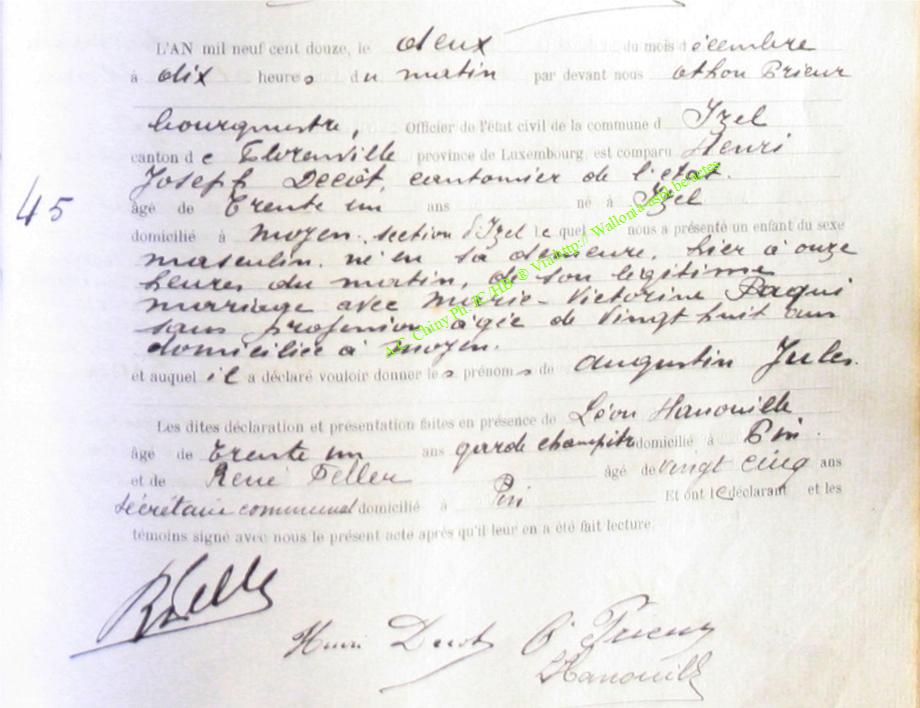 L'AN mil neuf cent douze, le deux du mois décembre
à dix heures du matin par devant nous Othon Prieur
bourgmestre, Officier de l'état civil de la commune d Izel
canton de Florenville province de Luxembourg, est comparu Henri
Joseph Decôt, cantonnier de l'état.
45
âgé de trente un ans né à Izel
domicilié à moyen, section d'Izel lequel nous a présenté un enfant du sexe
masculin, né en sa demeure, hier à onze
heures du matin, de son légitime
mariage avec Marie-Victorine Paqui
sans profession, âgée de vingt huit ans
domiciliée à moyen.
et auquel il a déclaré vouloir donner les prénoms de Augustin Jules.
Les dites déclaration et présentation faites en présence de Léon Hanouille
âgé de trente un ans garde champêtre domicilié à Pin.
et de René Feller âgé de vingt cinq ans
secrétaire communal domicilié à Pin Et ont le déclarant et les
témoins signé avec nous le présent acte après qu'il leur en a été fait lecture.
R Feller
Henri Decot O Prieur
Hanouille